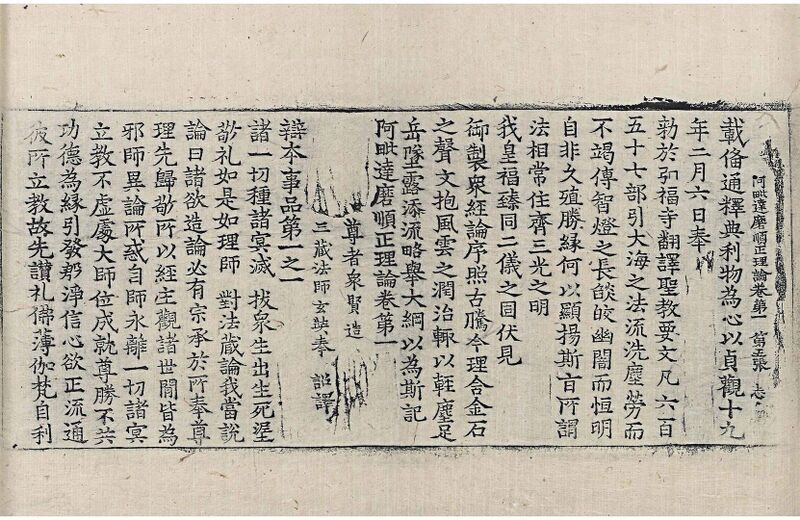 阿毗達磨順正理論卷第一 第五張 志
載俻通釋典利物為心以貞觀十九
年二月六日奉
勑於弘福寺翻譯聖教要文凢六百
五十七部引大海之法流洗塵勞而
不竭傳智燈之長焰皎幽闇而恒明
自非久殖勝緣何以顯揚斯旨所謂
法相常住齊三光之明
我皇福臻同二儀之固伏見
御製衆經論序照古騰今理含金石
之聲文抱風雲之潤治輒以輕塵足
岳墜露添流略舉大綱以為斯記
阿毗達磨順正理論卷第一
尊者衆賢造
三藏法師玄奘奉 詔譯
辯本事品第一之一
諸一切種諸冥滅 拔衆生出生死泥
敬礼如是如理師 對法藏論我當說
論曰諸欲造論必有宗承於所奉尊
理先歸敬所以經主觀諸世間皆為
邪師異論所惑自師永離一切諸冥
立教不虛處大師位成就尊勝不共
功德為緣引發殊淨信心欲正流通
彼所立教故先讃礼佛薄伽梵自利